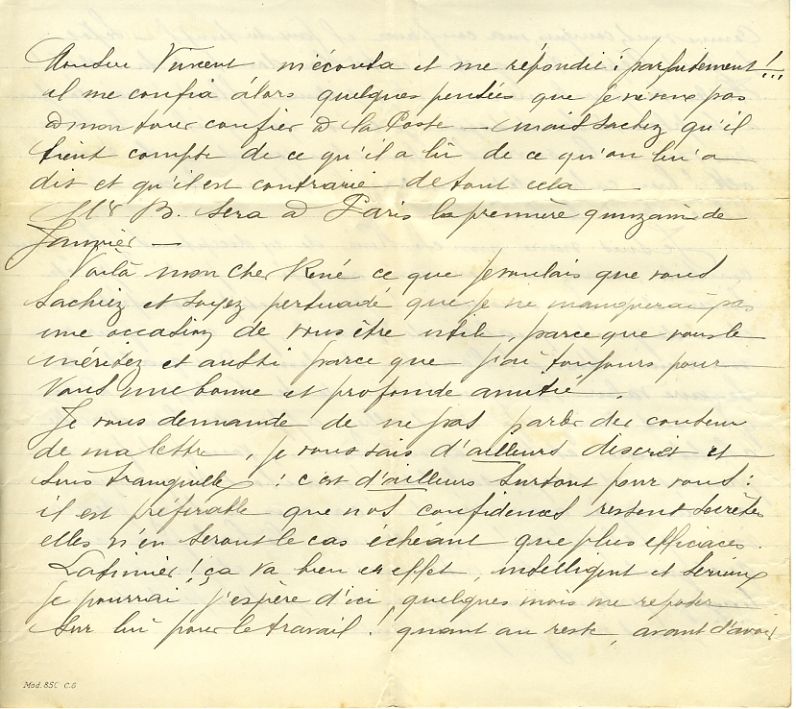 Monsieur Vincent m'écouta et me répondit : parfaitement !..
il me confia alors quelques pensées que je ne veux pas
à mon tour confier à la Poste — mais sachez qu'il
tient compte de ce qu'il a lû de ce qu'on lui a
dit et qu'il est contrarié de tout cela —
Mr B. sera à Paris la première quinzaine de
Janvier —
Voilà mon cher René ce que je voulais que vous
sachiez et soyez persuadé que je ne manquerai pas
une occasion de vous être utile, parce que vous le
méritez et aussi parce que j'ai toujours pour
vous une bonne et profonde amitié.
Je vous demande de ne pas parler du contenu
de ma lettre, je vous sais d'ailleurs discret et
suis tranquille : c'est d'ailleurs surtout pour vous :
il est préférable que nos confidences restent secrètes
elles n'en seront le cas échéant que plus efficaces.
! ça va bien en effet, intelligent et sérieux
je pourrai j'espère d'ici quelques mois me reposer
sur lui pour le travail ! quant au reste, avant d'avoir
Mod. 851 C.G